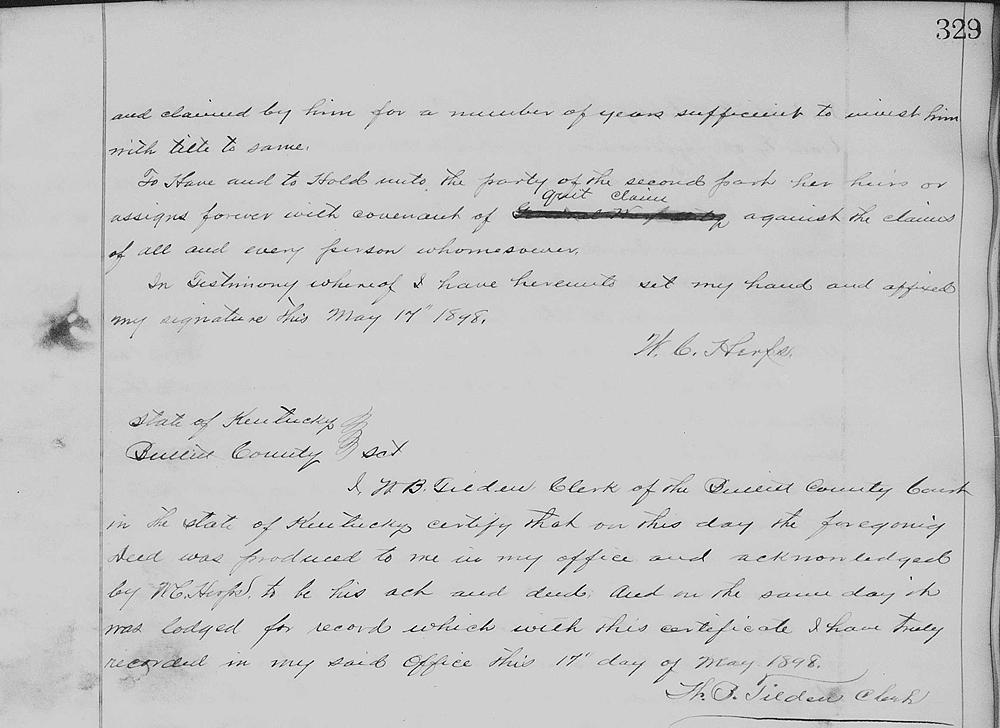 329
and claimed by him for a number of years sufficient to invest him
with title to same.
To Have and to Hold unto the party of the second part her heirs or
quit claim
assigns forever with covenant of General Warranty against the claims
of all and every person whomsoever.
In Testimony whereof I have hereunto set my hand and affixed
my signature this May 17" 1898.
W. C. Herps.
State of Kentucky
Bullitt County sct
I, W. B. Tilden Clerk of the Bullitt County Court
in the State of Kentucky certify that on this day the foregoing
Deed was produced to me in my office and acknowledged
by W C. Herps. to be his act and deed; And on the same day it
was lodged for record which with this certificate I have truly
recorded in my said Office this 17" day of May 1898.
W. B. Tilden Clerk